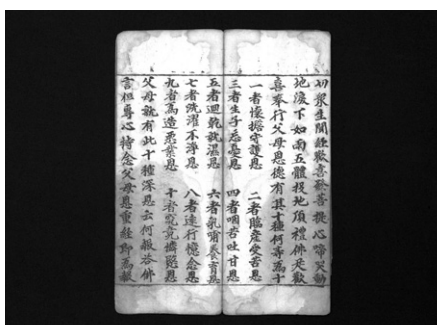 切眾生聞經歡喜發菩提心啼哭動
地淚下如雨五體投地頂禮佛足歡
喜奉行父母恩德有其十種何等為十
一者懷擔守護恩 二者臨產受苦恩
三者生子忘憂恩 四者咽苦吐甘恩
五者迴乾就濕恩 六者乳哺養育恩
七者洗濯不淨恩 八者遠行憶念恩
九者為造惡業恩 十者究竟憐愍恩
父母就有此十種深恩云何報答佛
言但專心持念父母恩重經即為報